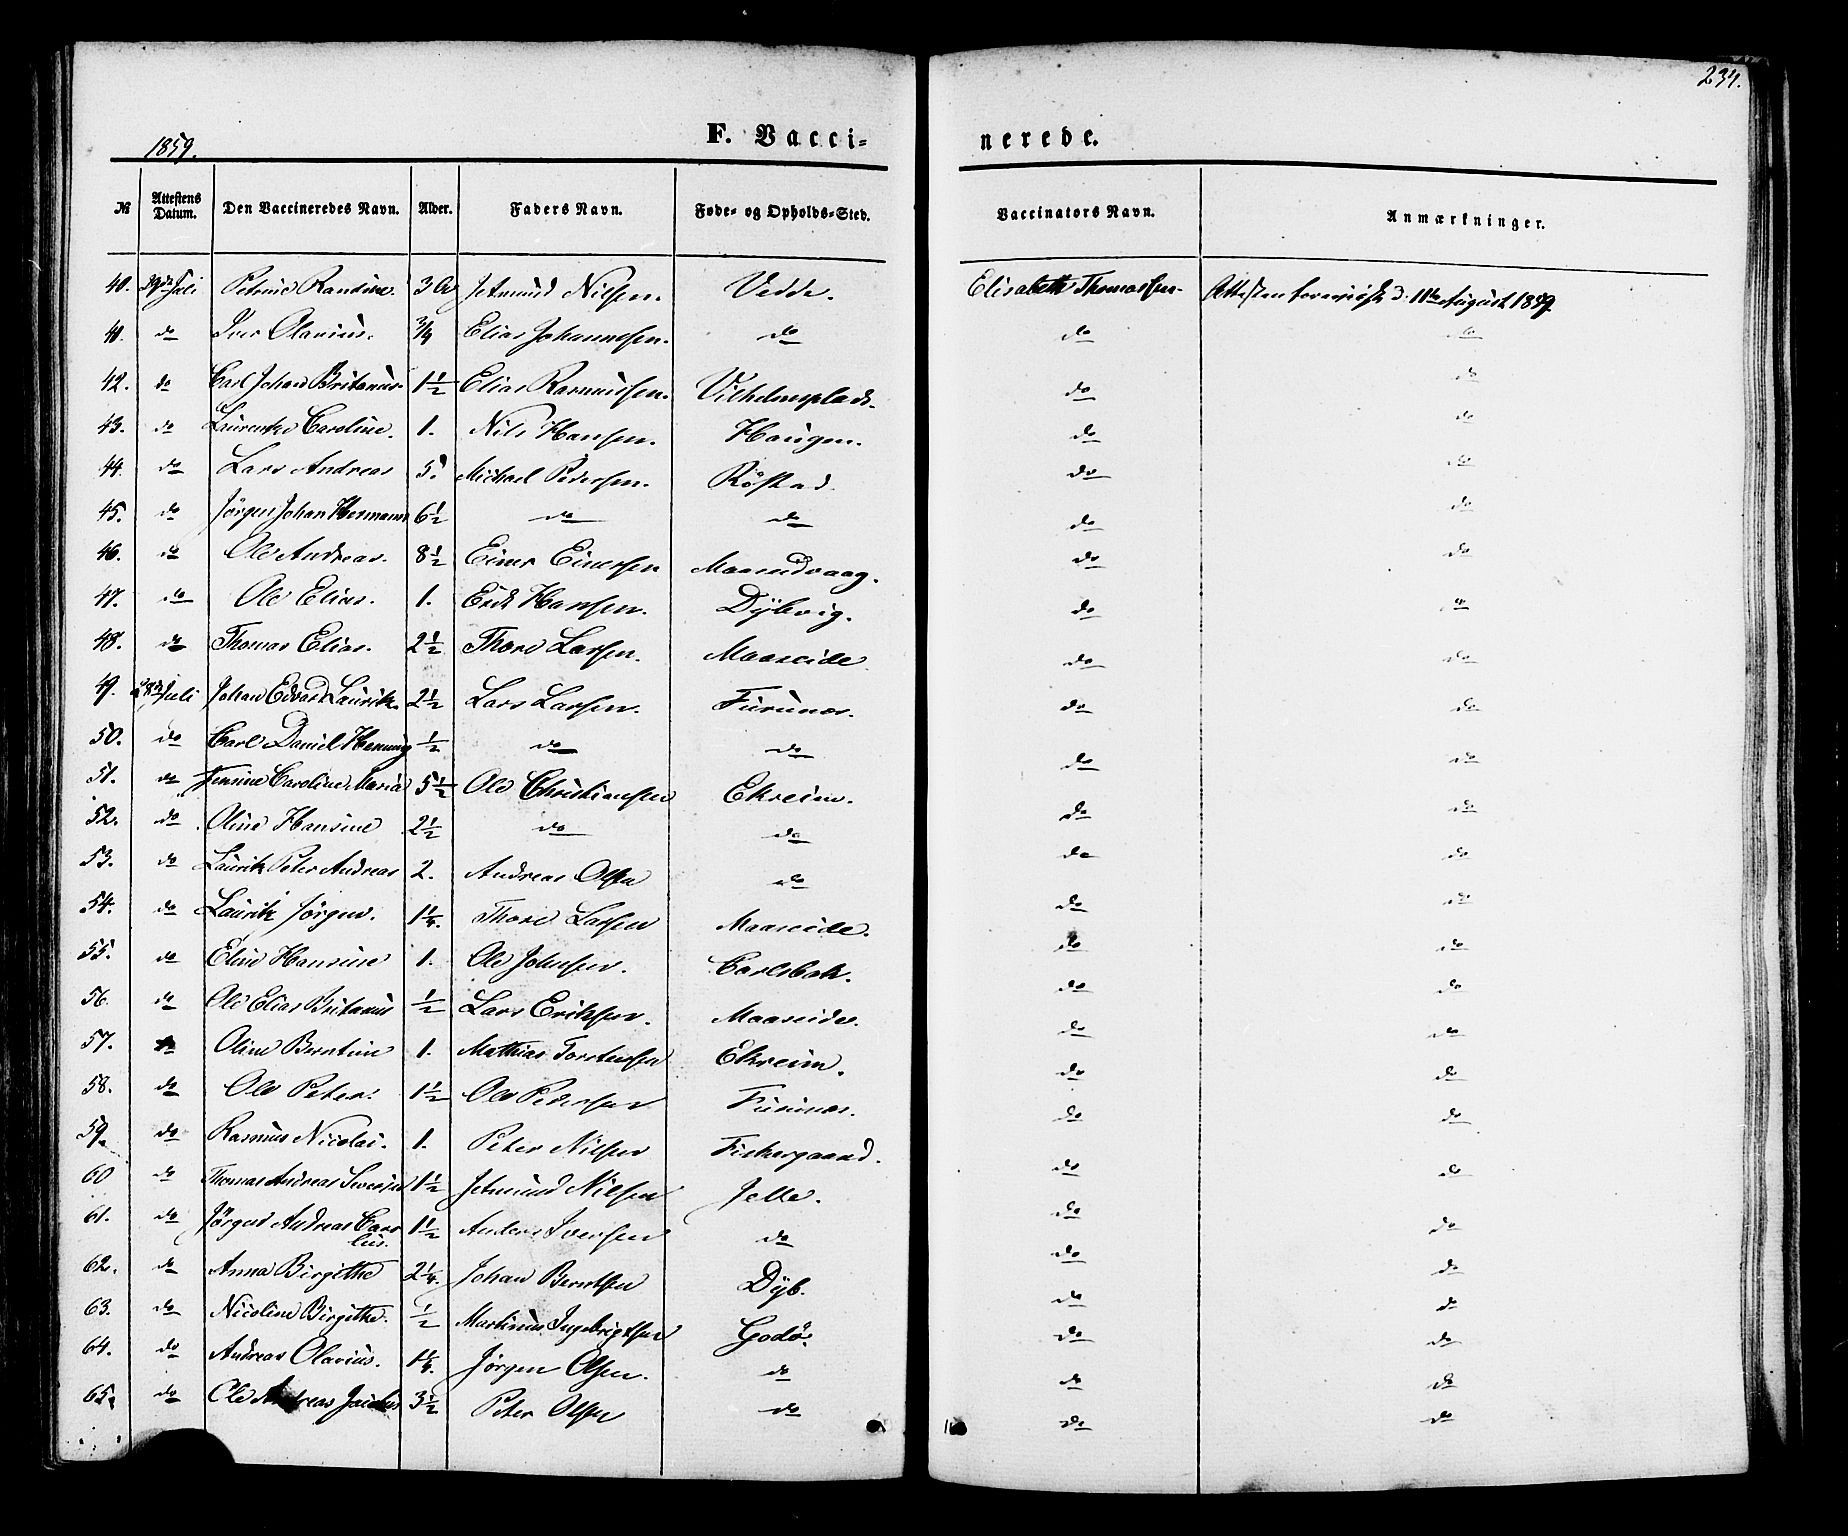 234.
1859.
F. Vacci=
nerede.
№ Attestens Datum. Den Vaccineredes Navn. Alder. Faders Navn. Føde- og Opholds-Sted. Vaccinators Navn. Anmærkninger.
40. Juli Petrine 3 Jetmund Nilsen. Vedde. Elisabeth Thomassen. Attesten d. 11te August 1859.
41. do Iver Olavius. 3/4 Elias Johannesen. do do do
42. do Carl Johan Britanus 1 1/2 Elias Rasmussen. Vilhelmsplads. do do
43. do Laurentse Caroline. 1. Nils Hansen. Haugen. do do
44. do Lars Andreas 5. Michael Pedersen. Røstad. do do
45. do Jørgen Johan Hermann 6 1/2 do do do do
46. do Ole Andreas. 8 1/2 Einer Einersen do do
47. do Ole Elias. 1. Erik Hansen. Dybvig. do do
48. do Thomas Elias. 2 1/2 Thore Larsen. Maaseide do do
49. 28de Juli Johan Edvard Laurits. 2 1/2 Lars Larsen. Furunes. do do
50. do Carl Daniel Henning 1/2 do do do do
51. do Jensine Caroline Maria 5 1/2 Ole Christiansen Ekreim. do do
52. do Oline Hansine 2 1/2 do do do do
53. do Laurits Peter Andreas 2. Andreas Olsen do do do
54. do Laurits Jørgen. 1 1/4. Thore Larsen Maaseide. do do
55. do Eline Hansine 1. Ole Johnsen. Carlsbak. do do
56. do Ole Elias Britanus 1/2 Lars Eriksen. Maaseide. do do
57. do Oline Berntine 1. Mathias Torstensen Ekreim. do do
58. do Ole Peter. 1 1/2 Ole Pedersen Furunes. do do
59. do Rasmus Nicolai. 1. Peter Nilsen Fiskergaard. do do
60 do Thomas Andreas Severin 1 1/2 Jetmund Nilsen Jelle. do do
61. do Jørgen Andreas Car-
lus. 1 1/2 Anders Iversen do do do
62. do Anna Birgithe 2 1/4. Johan Berntsen Dyb. do do
63. do Nicoline Birgithe. 1/2 Martinus Ingebrigtsen Godø. do do
64. do Andreas Olavius. 1 1/4. Jørgen Olsen. do do do
65. do Ole Andreas 3 1/2 Peter Olsen do do do